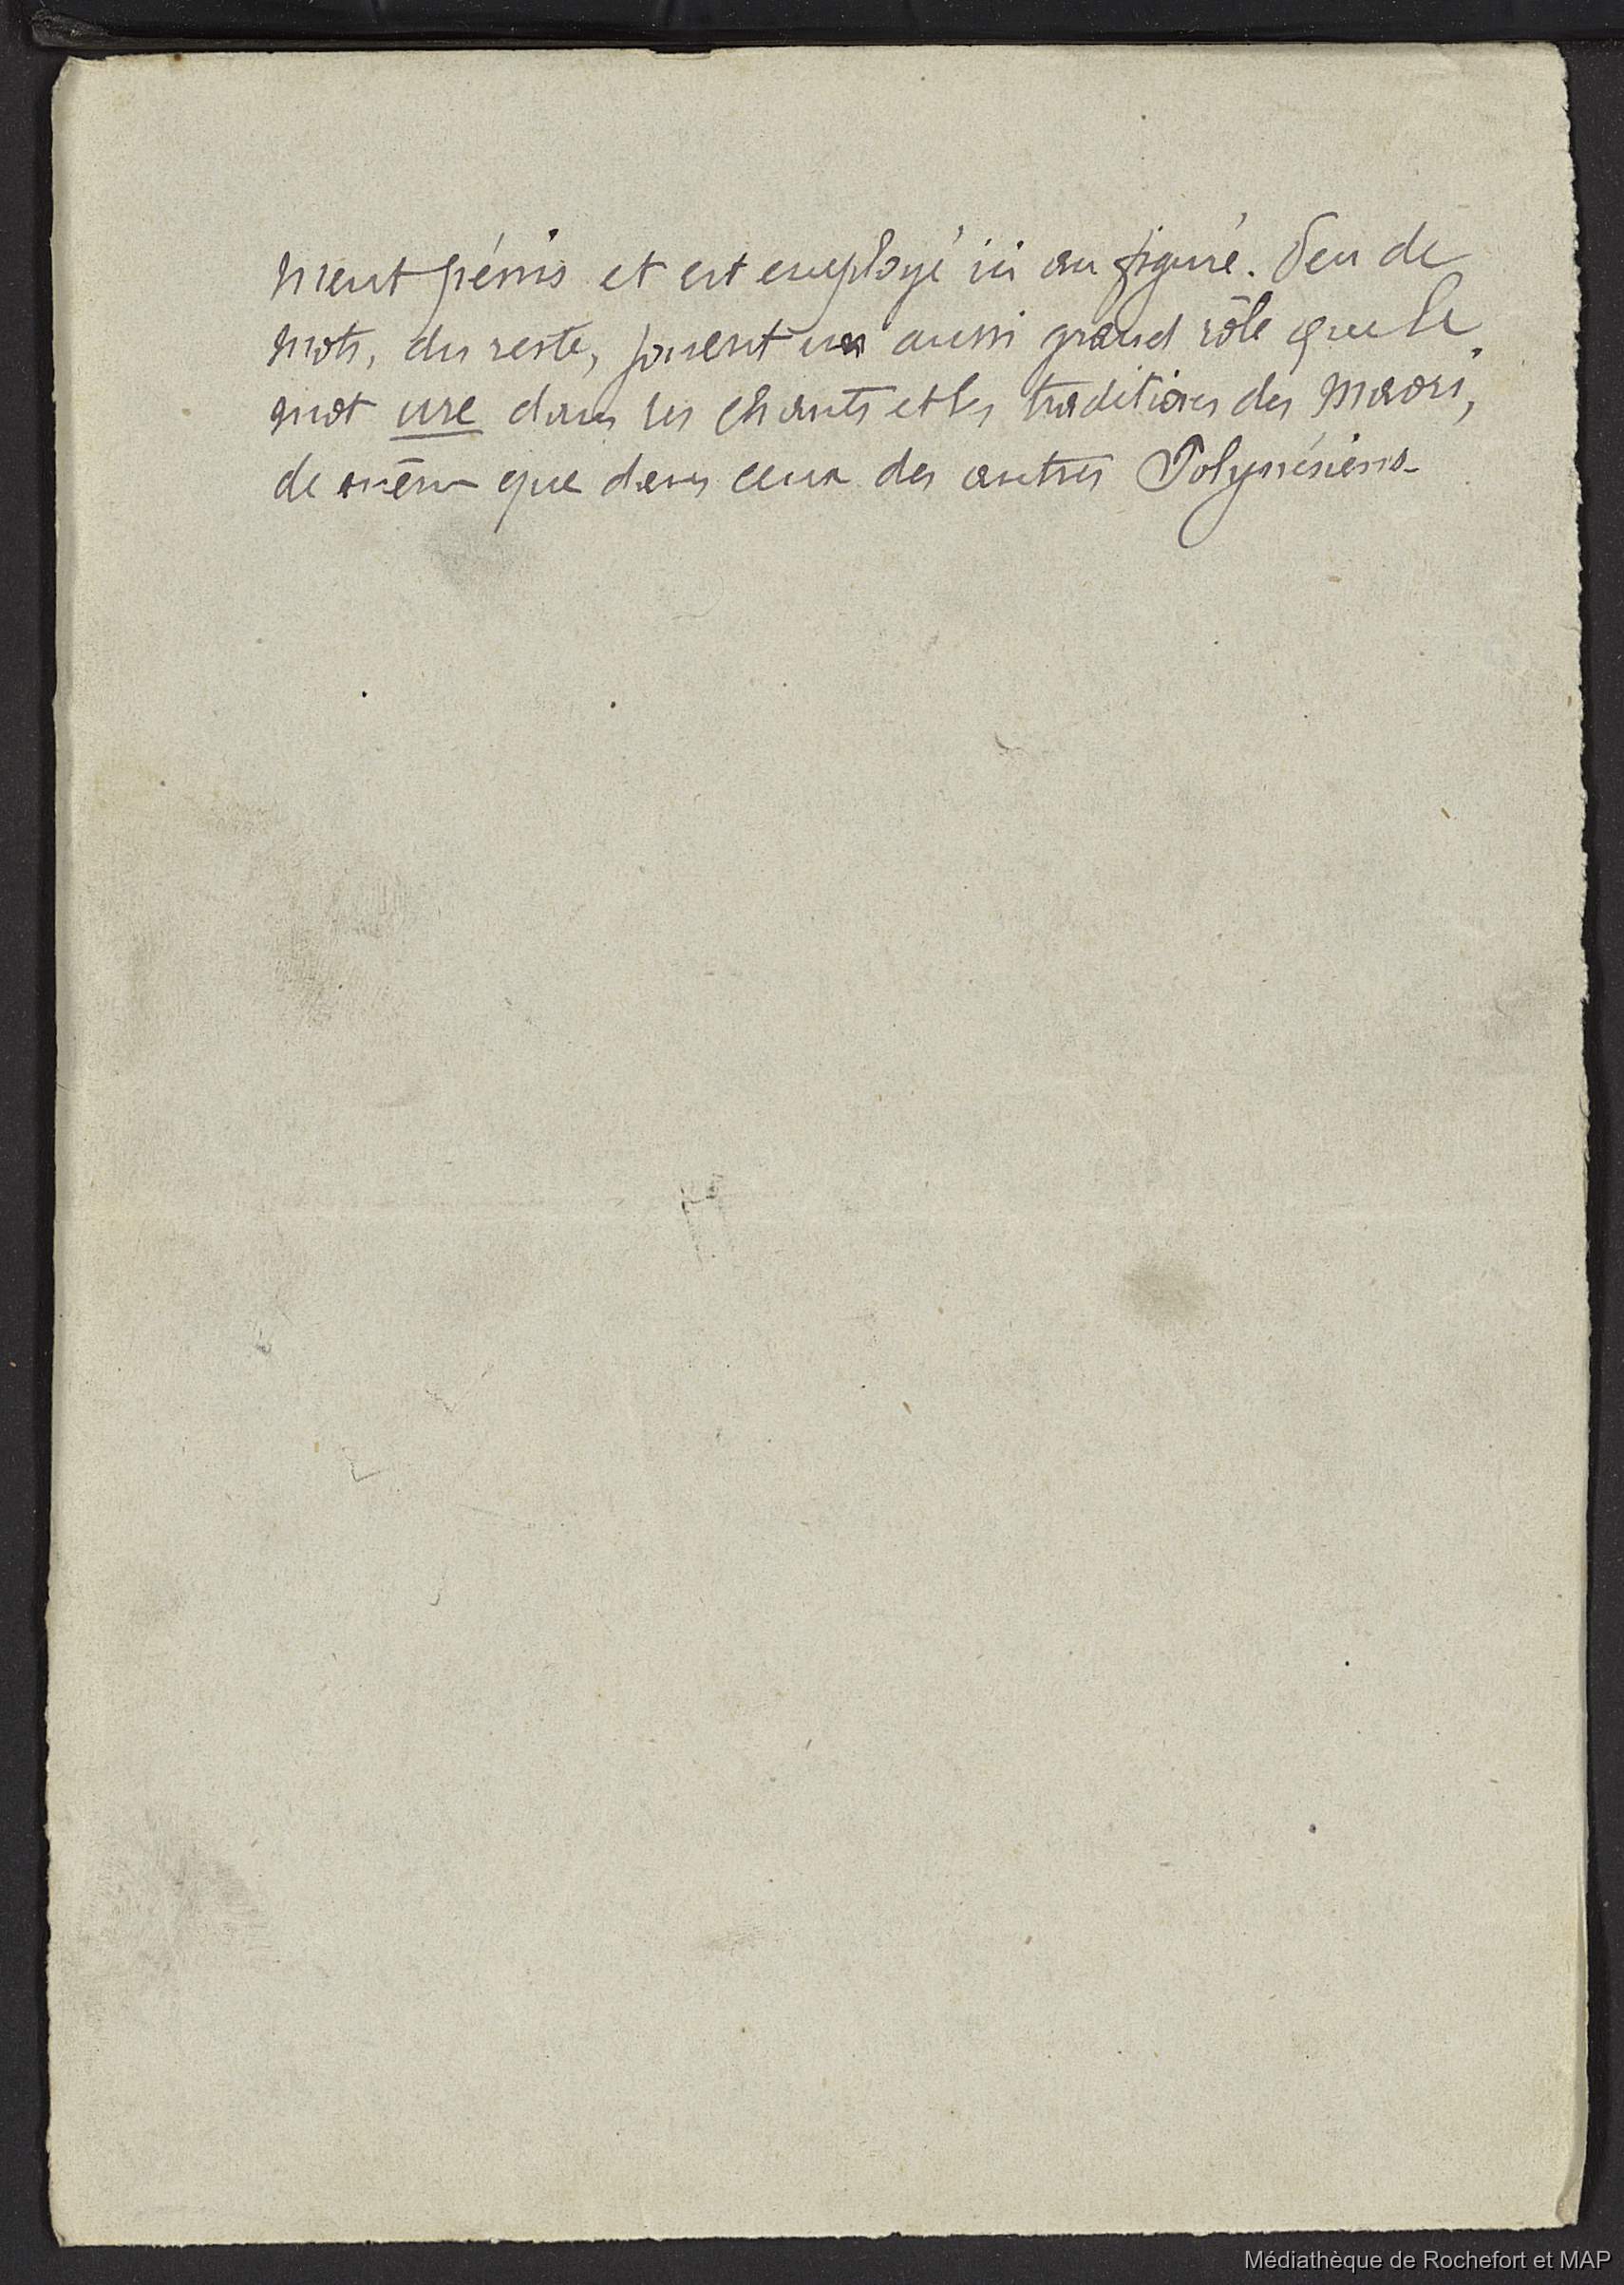 ment pénis et est employé ici au figuré. Peu de
mots, du reste, jouent un aussi grand rôle que le
mot ure dans les chants et les traditions des Maori,
de même que dans ceux des autres Polynésiens
Médiathèque de Rochefort et MAP